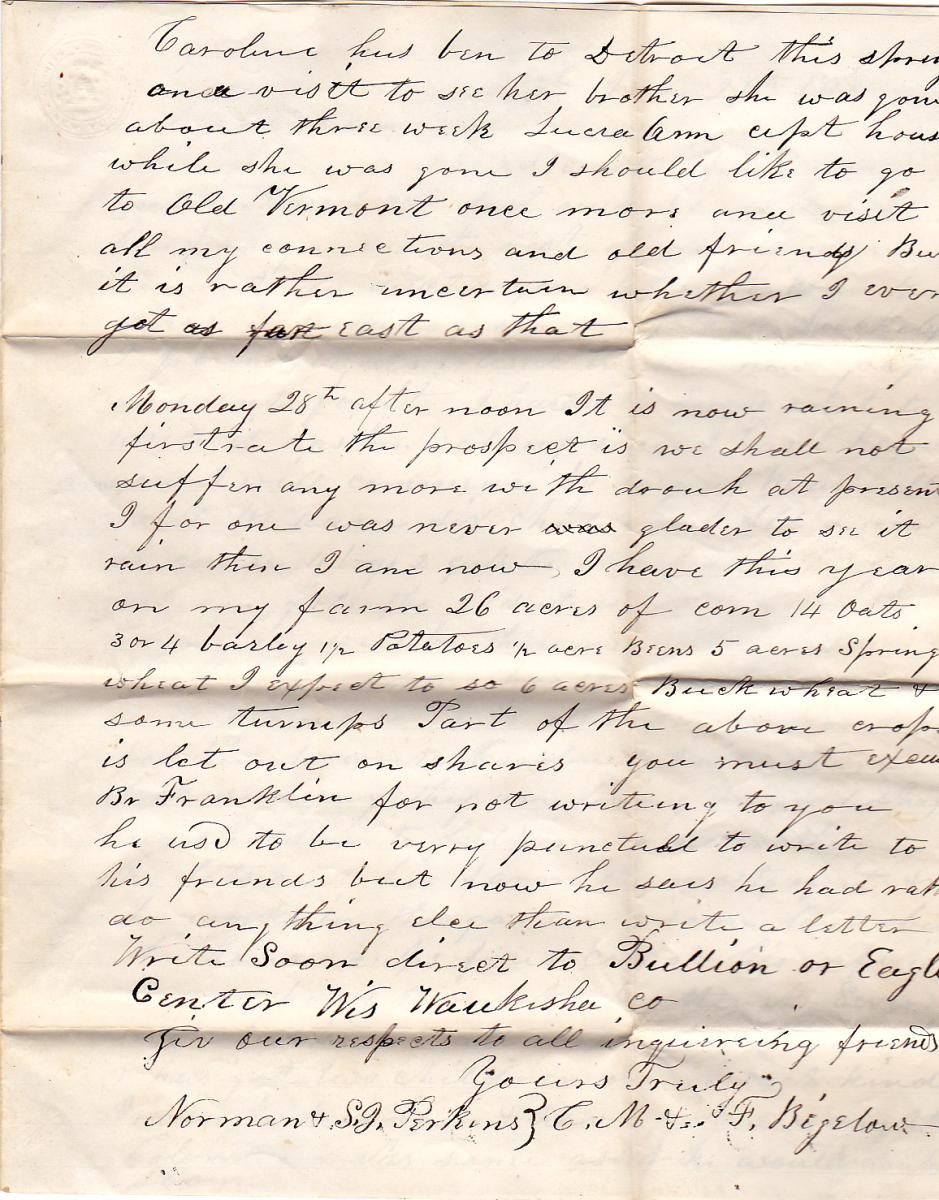 Caroline has ben to Detroit this
on a visitt to see her brother she was
about three week Lucia Ann cept
while she was gone I should like to go
to Old Vermont once more and visit
all my connections and old friends
it is rather uncertain whether I ever
get as far east as that
Monday 28th after noon It is now raining
firstrate the prospect is we shall not
suffer any more with drouh at present
I for one was never was glader to see it
rain then I am now, I have this year
on my farm 26 acres of corn 14 Oats
3 or 4 barley 1 1/2 Potatoes 1/2 acre Beens 5 acres Spring
wheat I expect to so 6 acres Buckwheat &
some turnips Part of the above crops
is let out on shares you must
Br Franklin for not writeing to you
he usd to be verry punctual to write to
his friends but now he sais he had
do any thing elce than write a letter
Write Soon direct to Bullion or Eagle
Center Wis Waukisha co
Giv our respects to all inquireing friends
Yours Truly
Norman & S.J. Perkins } C. M. & F. Bigelow